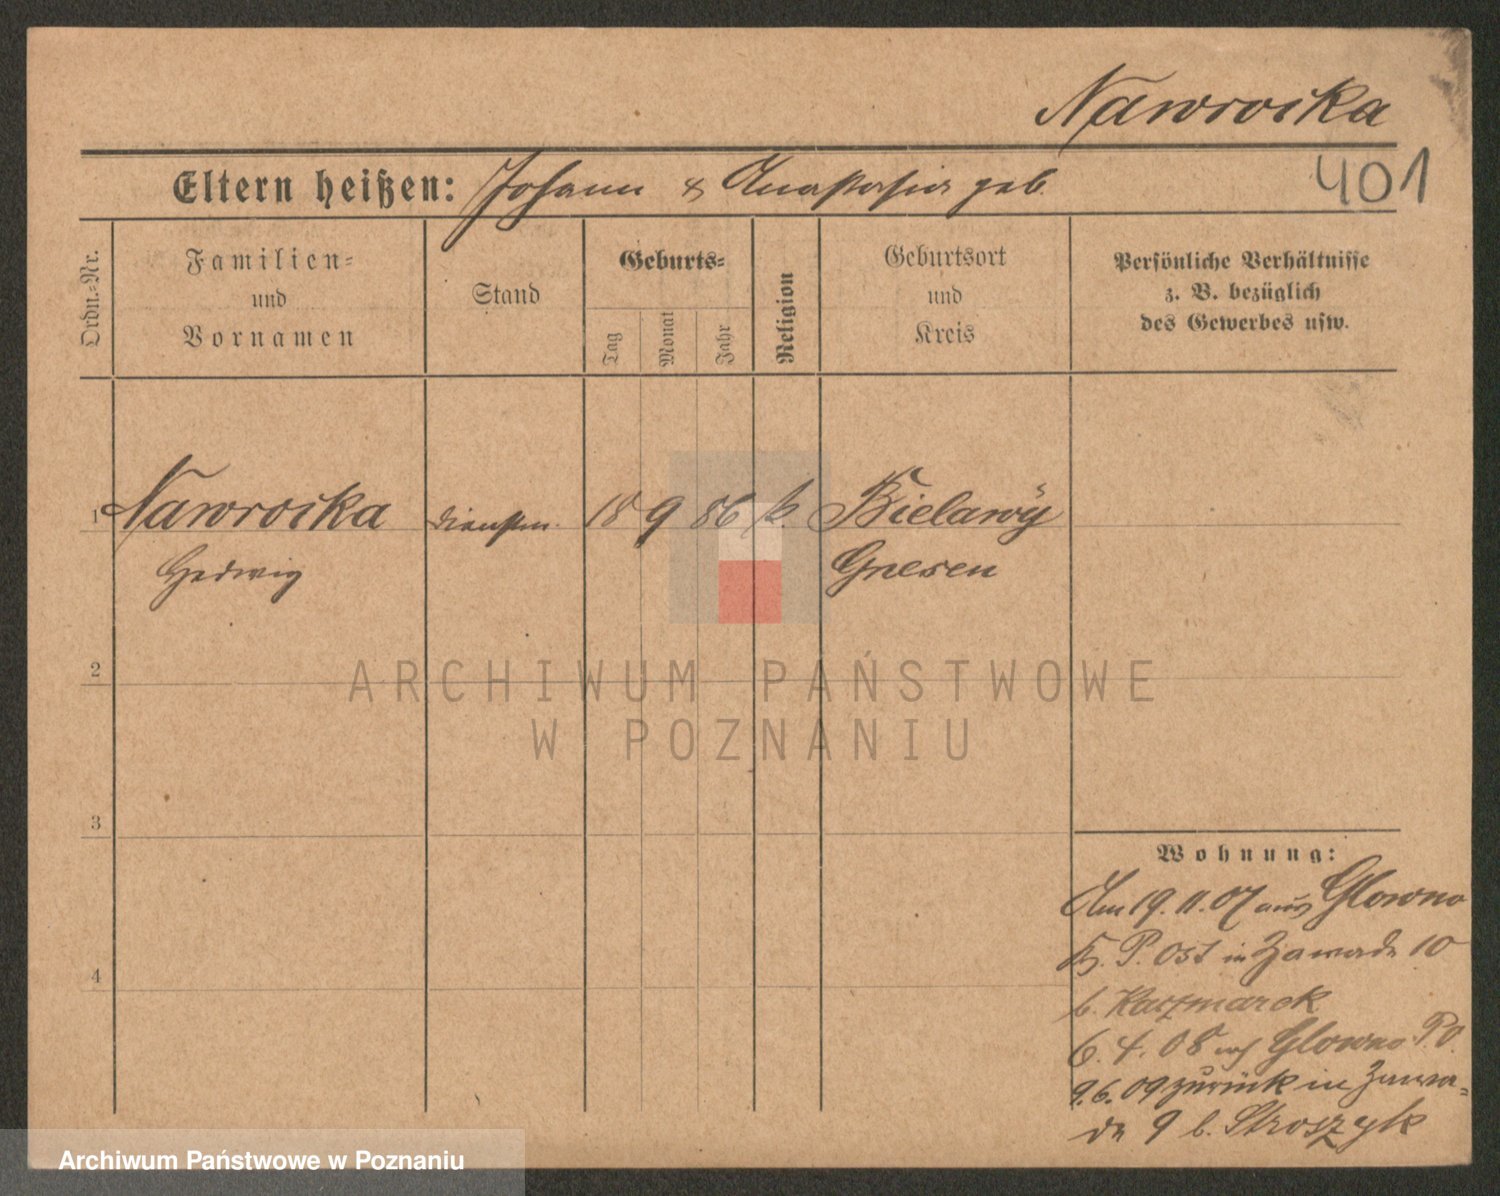 Nawrocka
401
Eltern heißen: Johann & Anastasia geb.
Ordn.-Nr.
Familien-
und
Vornamen
Stand
Geburts-
Tag
Monat
Jahr
Religion
Geburtsort
und
Kreis
Persönliche Verhältnisse
z. B. bezüglich
des Gewerbes usw.
1 Nawrocka dienstm. 18 9 86 k. Bielawÿ
Hedwig Gnesen
2
3
4
Wohnung:
Am 19.11.07 aus Glowno
P. Ost in Zawade 10
b. Kaczmarek
6.4.08 nach Glowno P.O.
9.6.09 zurück in Zawa-
de 9 b. Stroszyk
ARCHIWUM PAŃSTWOWE
W POZNANIU
Archiwum Państwowe w Poznaniu